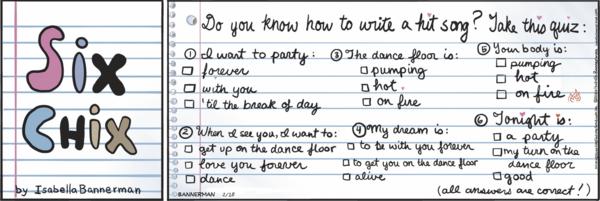 Six
CHIX
by Isabella Bannerman
Do you know how to write a hit song? Take this quiz:
① I want to party:
forever
with you
'til the break of day
② When I see you, I want to:
get up on the dance floor
love you forever
dance
BANNERMAN 2/28
③ The dance floor is:
pumping
hot
on fire
④ My dream is:
to be with you forever
to get you on the dance floor
alive
⑤ Your body is:
pumping
hot
on fire
⑥ Tonight is:
a party
my turn on the
dance floor
good
(all answers are correct!)